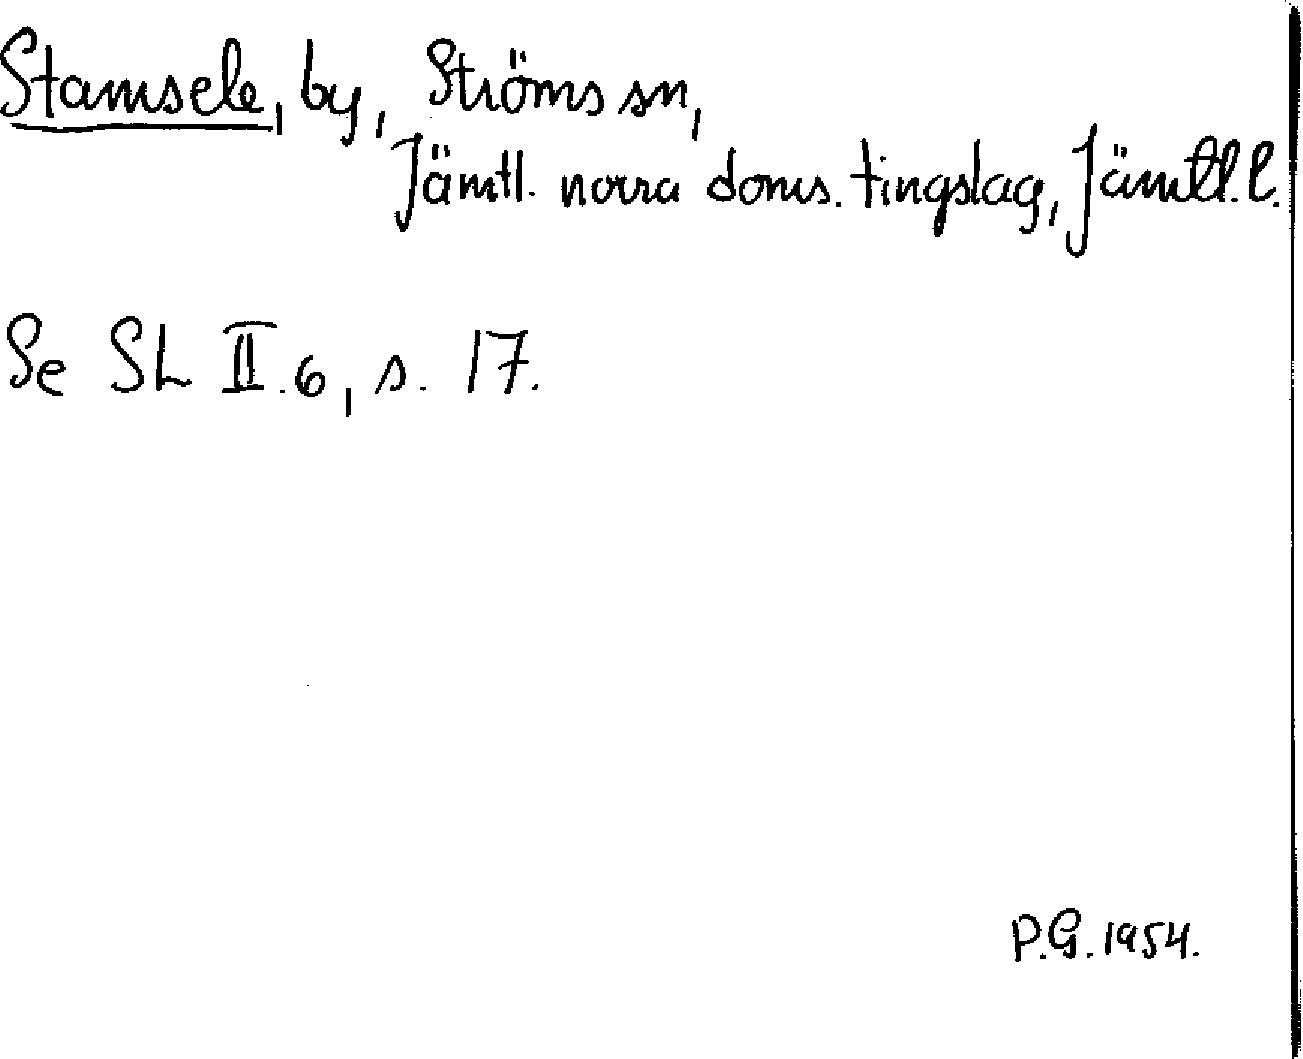 Stamsele, by, Ströms sn,
Jämtl. norra doms. tingslag, Jämtl. l.
Se SL II.6, s. 17.
P.G. 1954.